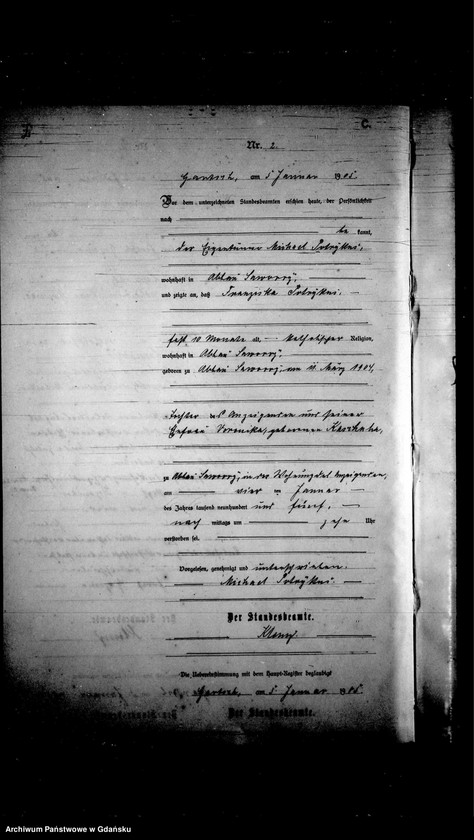 C.
Nr. 2
am 5 Januar 1905
Vor dem unterzeichneten Standesbeamten erschien heute, der Persönlichkeit
nach
be kannt,
der Eigentümer Michael
wohnhaft in Abbau
und zeigte an, daß Franziska
fast 10 Monate alt, katholischer Religion,
wohnhaft in Abbau
geboren zu Abbau am 11 März 1904,
Tochter des Anzeigenden und seiner
Ehefrau Veronika, geborenen
zu Abbau in der Wohnung des Anzeigenden,
am vier ten Januar
des Jahres tausend neunhundert und fünf,
nach mittags um zehn Uhr
verstorben sei.
Vorgelesen, genehmigt und unterschrieben.
Michael
Der Standesbeamte.
Die Uebereinstimmung mit dem Haupt-Register beglaubigt
am 5. Januar 1905
Der Standesbeamte.
Archiwum Państwowe w Gdańsku